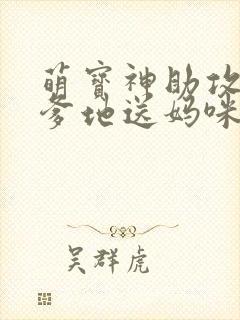 萌宝神助攻
爹地送妈咪
吴群虎